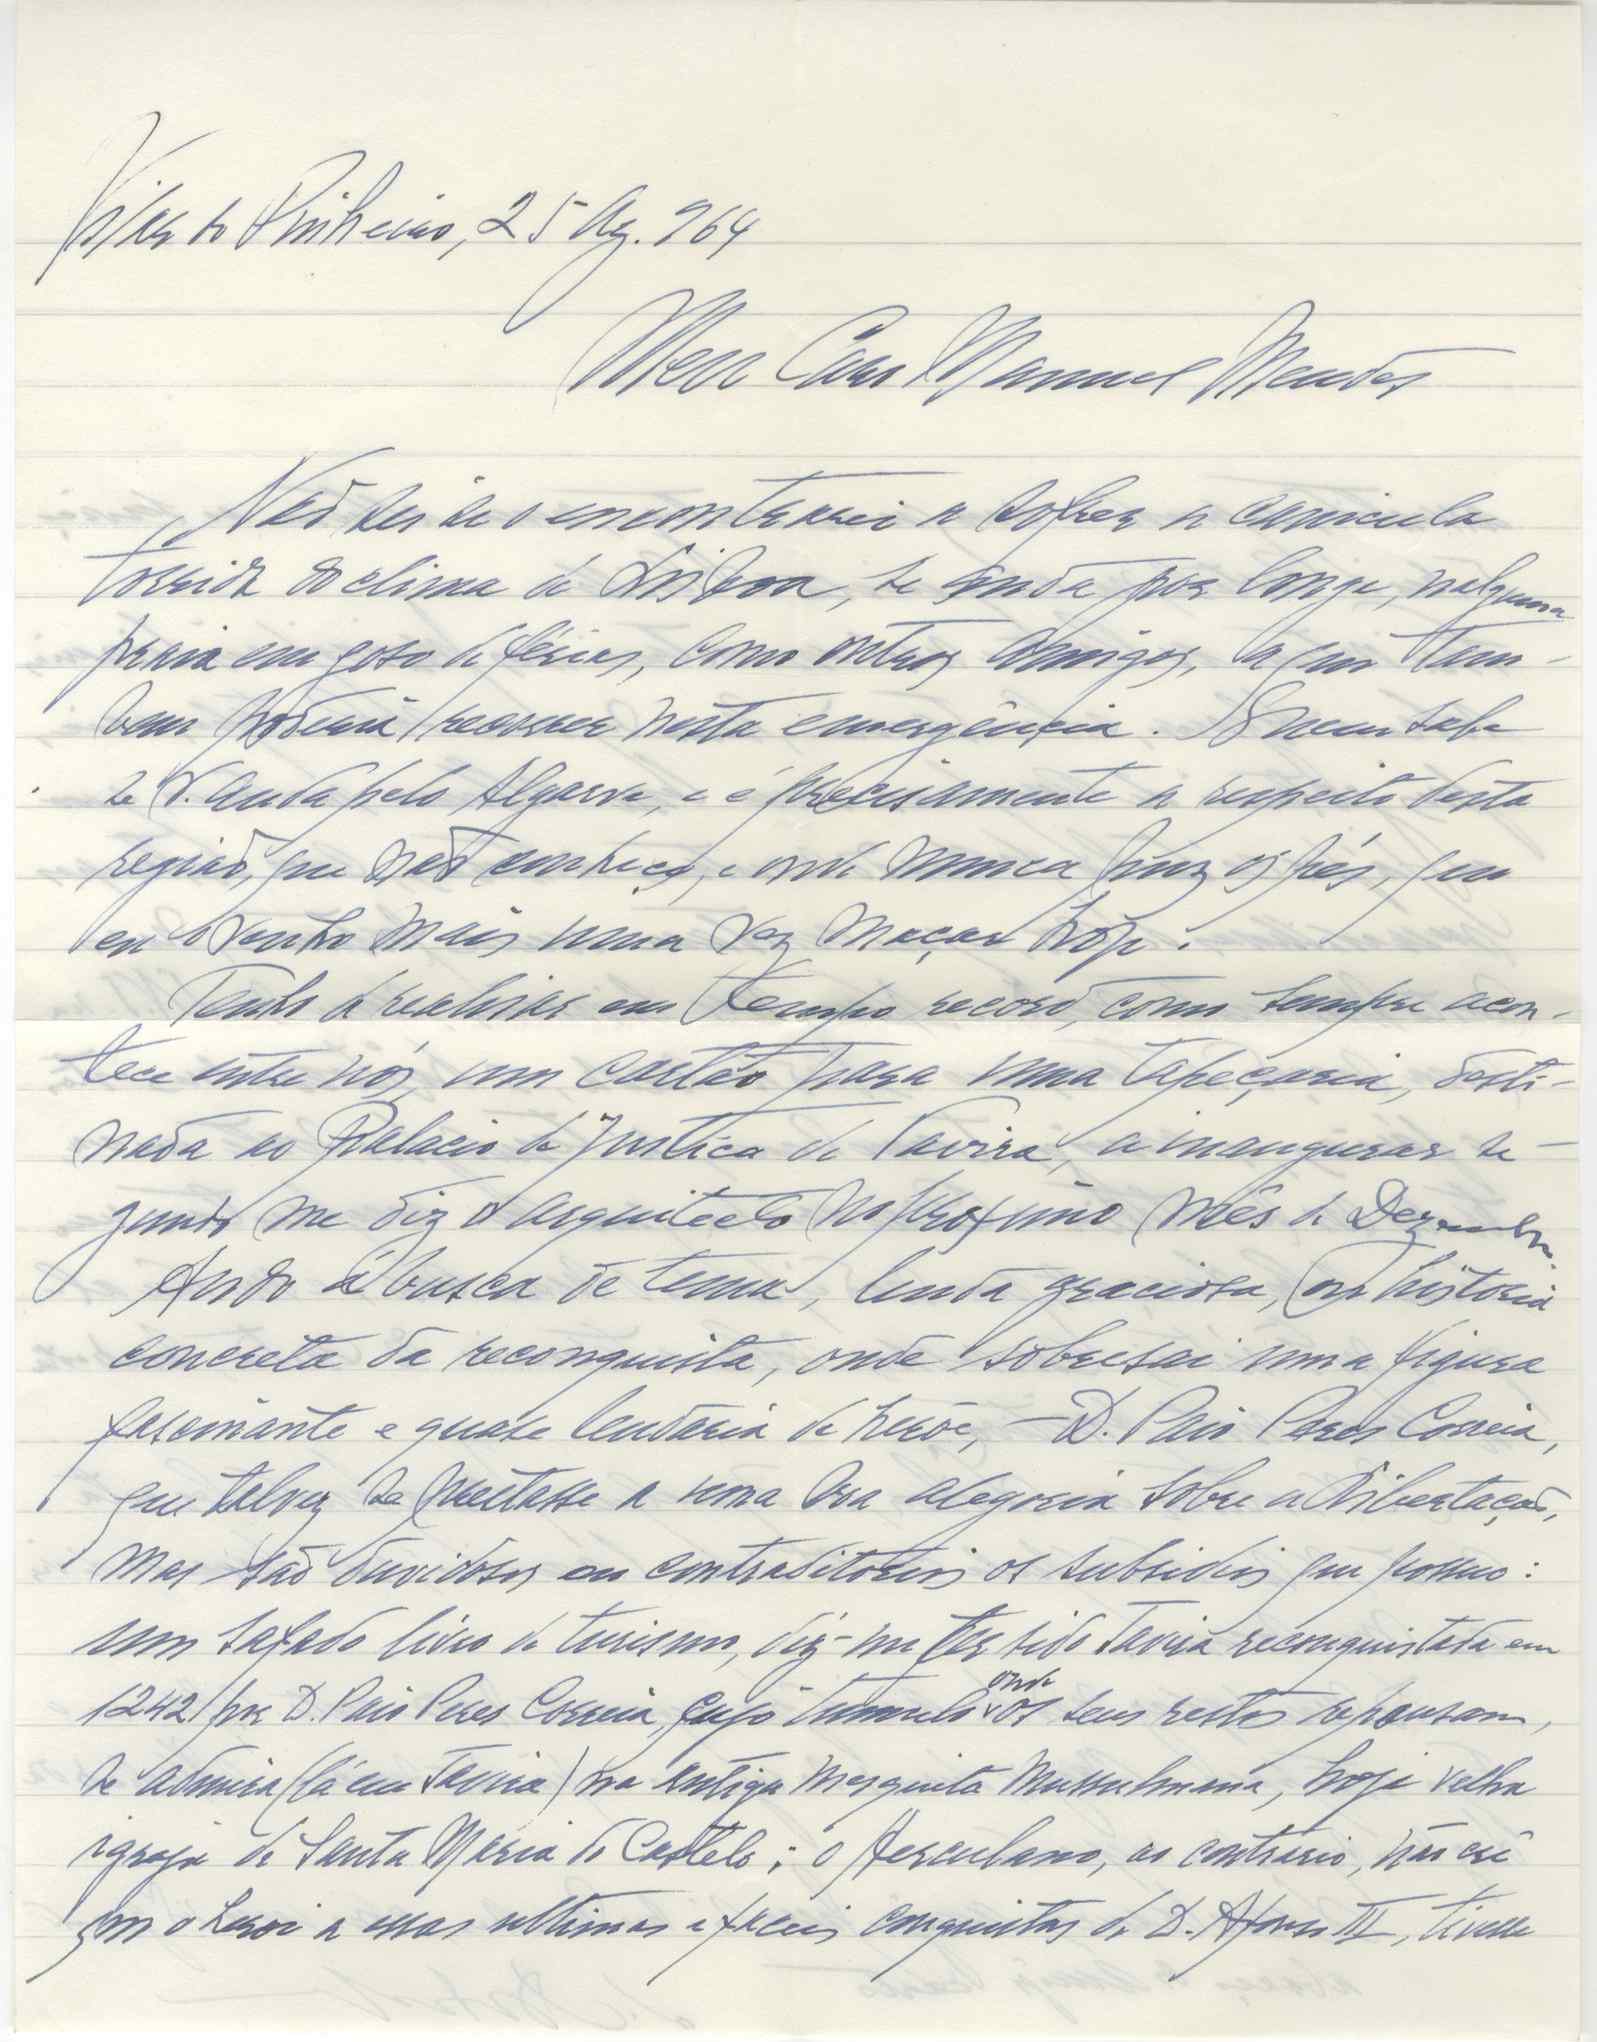 Vilar do Pinheiro, 25 Ag. 964
Meu Caro Manuel Mendes
Não sei se o encontrarei a sofrer a canicula
torrida do clima de Lisboa, se anda por longe, nalguma
praia em goso de férias, como outros amigos, a quem tam-
bem poderia recorrer nesta emergência. E nem sabe
se V. anda pelo Algarve, e é precisamente a respeito desta
região, que não conheço, e onde nunca puz os pés, que
eu venho mais uma vez maçar hoje.
Tenho de realisar em tempo record, como sempre acon-
tece entre nós, um cartão para uma tapeçaria, desti-
nada ao Palacio de Justiça de Tavira, a inaugurar se-
gundo me diz o arquitecto no proximo mês de Dezembro.
Ando á busca de tema, lenda graciosa, ou história
concreta da reconquista, onde sobresai uma figura
fascinante e quase lendaria de heroe, - D. Paio Peres Correia,
que talvez se prestasse a uma boa alegoria sobre a Libertação,
mas são duvidosos ou contraditorios os subsidios que possuo:
um safado livro de turismo, diz-me ter sido Tavira reconquistada em
1242 por D. Paio Peres Correia cujo tumulo onde os seus restos repousam,
se admira (lá em Tavira) na antiga mesquita mussulmana, hoje velha
igreja de Santa Maria do Castelo; o Herculano, ao contrario, não crê
que o heroi a essas ultimas e faceis conquistas de D. Afonso III, tivesse